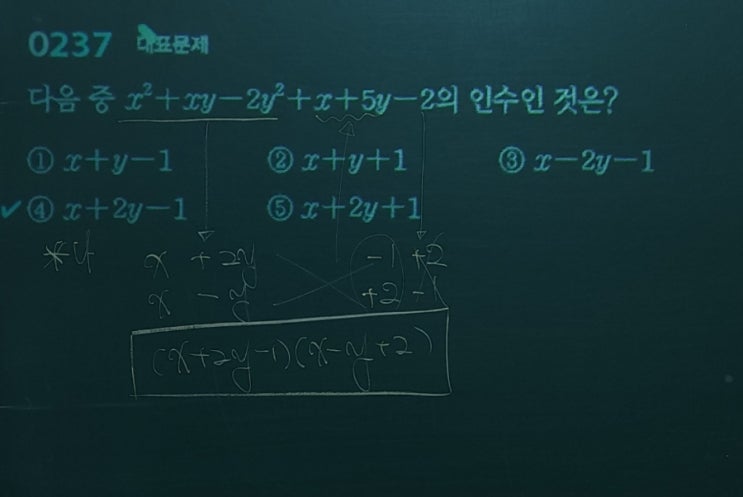 0237 대표문제
다음 중 x²+xy-2y²+x+5y-2의 인수인 것은?
① x+y-1 ② x+y+1 ③ x-2y-1
④ x+2y-1 ⑤ x+2y+1
x +2y -1 +2
x -y +2 -1
(x+2y-1)(x-y+2)